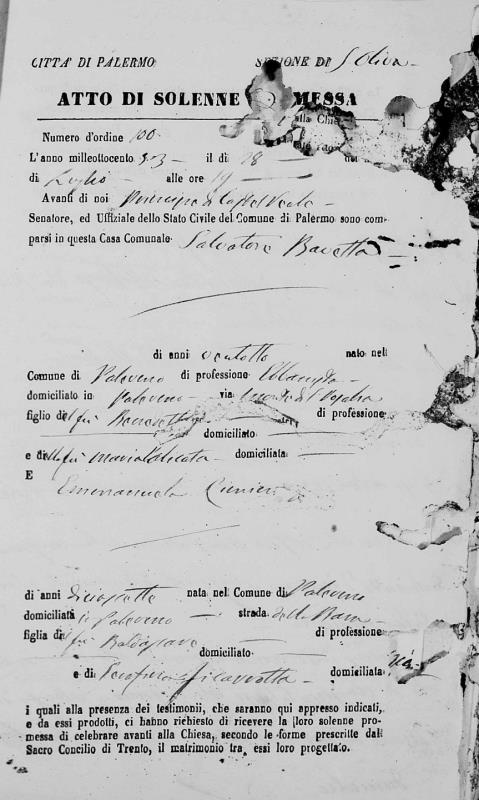 CITTA' DI PALERMO SEZIONE DI S Oliva
ATTO DI SOLENNE MESSA
alla Chiesa
Numero d'ordine 100
L'anno milleottocento 53 il di 28 del
di Luglio alle ore 19
Avanti di noi Principe di
Senatore, ed Uffiziale dello Stato Civile del Comune di Palermo sono com-
parsi in questa Casa Comunale Salvatore Baretta
di anni ventotto nato nel
Comune di Palermo di professione
domiciliato in Palermo via
figlio del fu Benedetto di professione
domiciliato
e della fu Maria domiciliata
E
Emmanuela
di anni diciassette nata nel Comune di Palermo
domiciliata in Palermo strada della
figlia di fu Baldassare di professione
domiciliato
e di domiciliata
i quali alla presenza dei testimonii, che saranno qui appresso indicati,
e da essi prodotti, ci hanno richiesto di ricevere la loro solenne pro-
messa di celebrare avanti alla Chiesa, secondo le forme prescritte dal
Sacro Concilio di Trento, il matrimonio tra essi loro progettato.